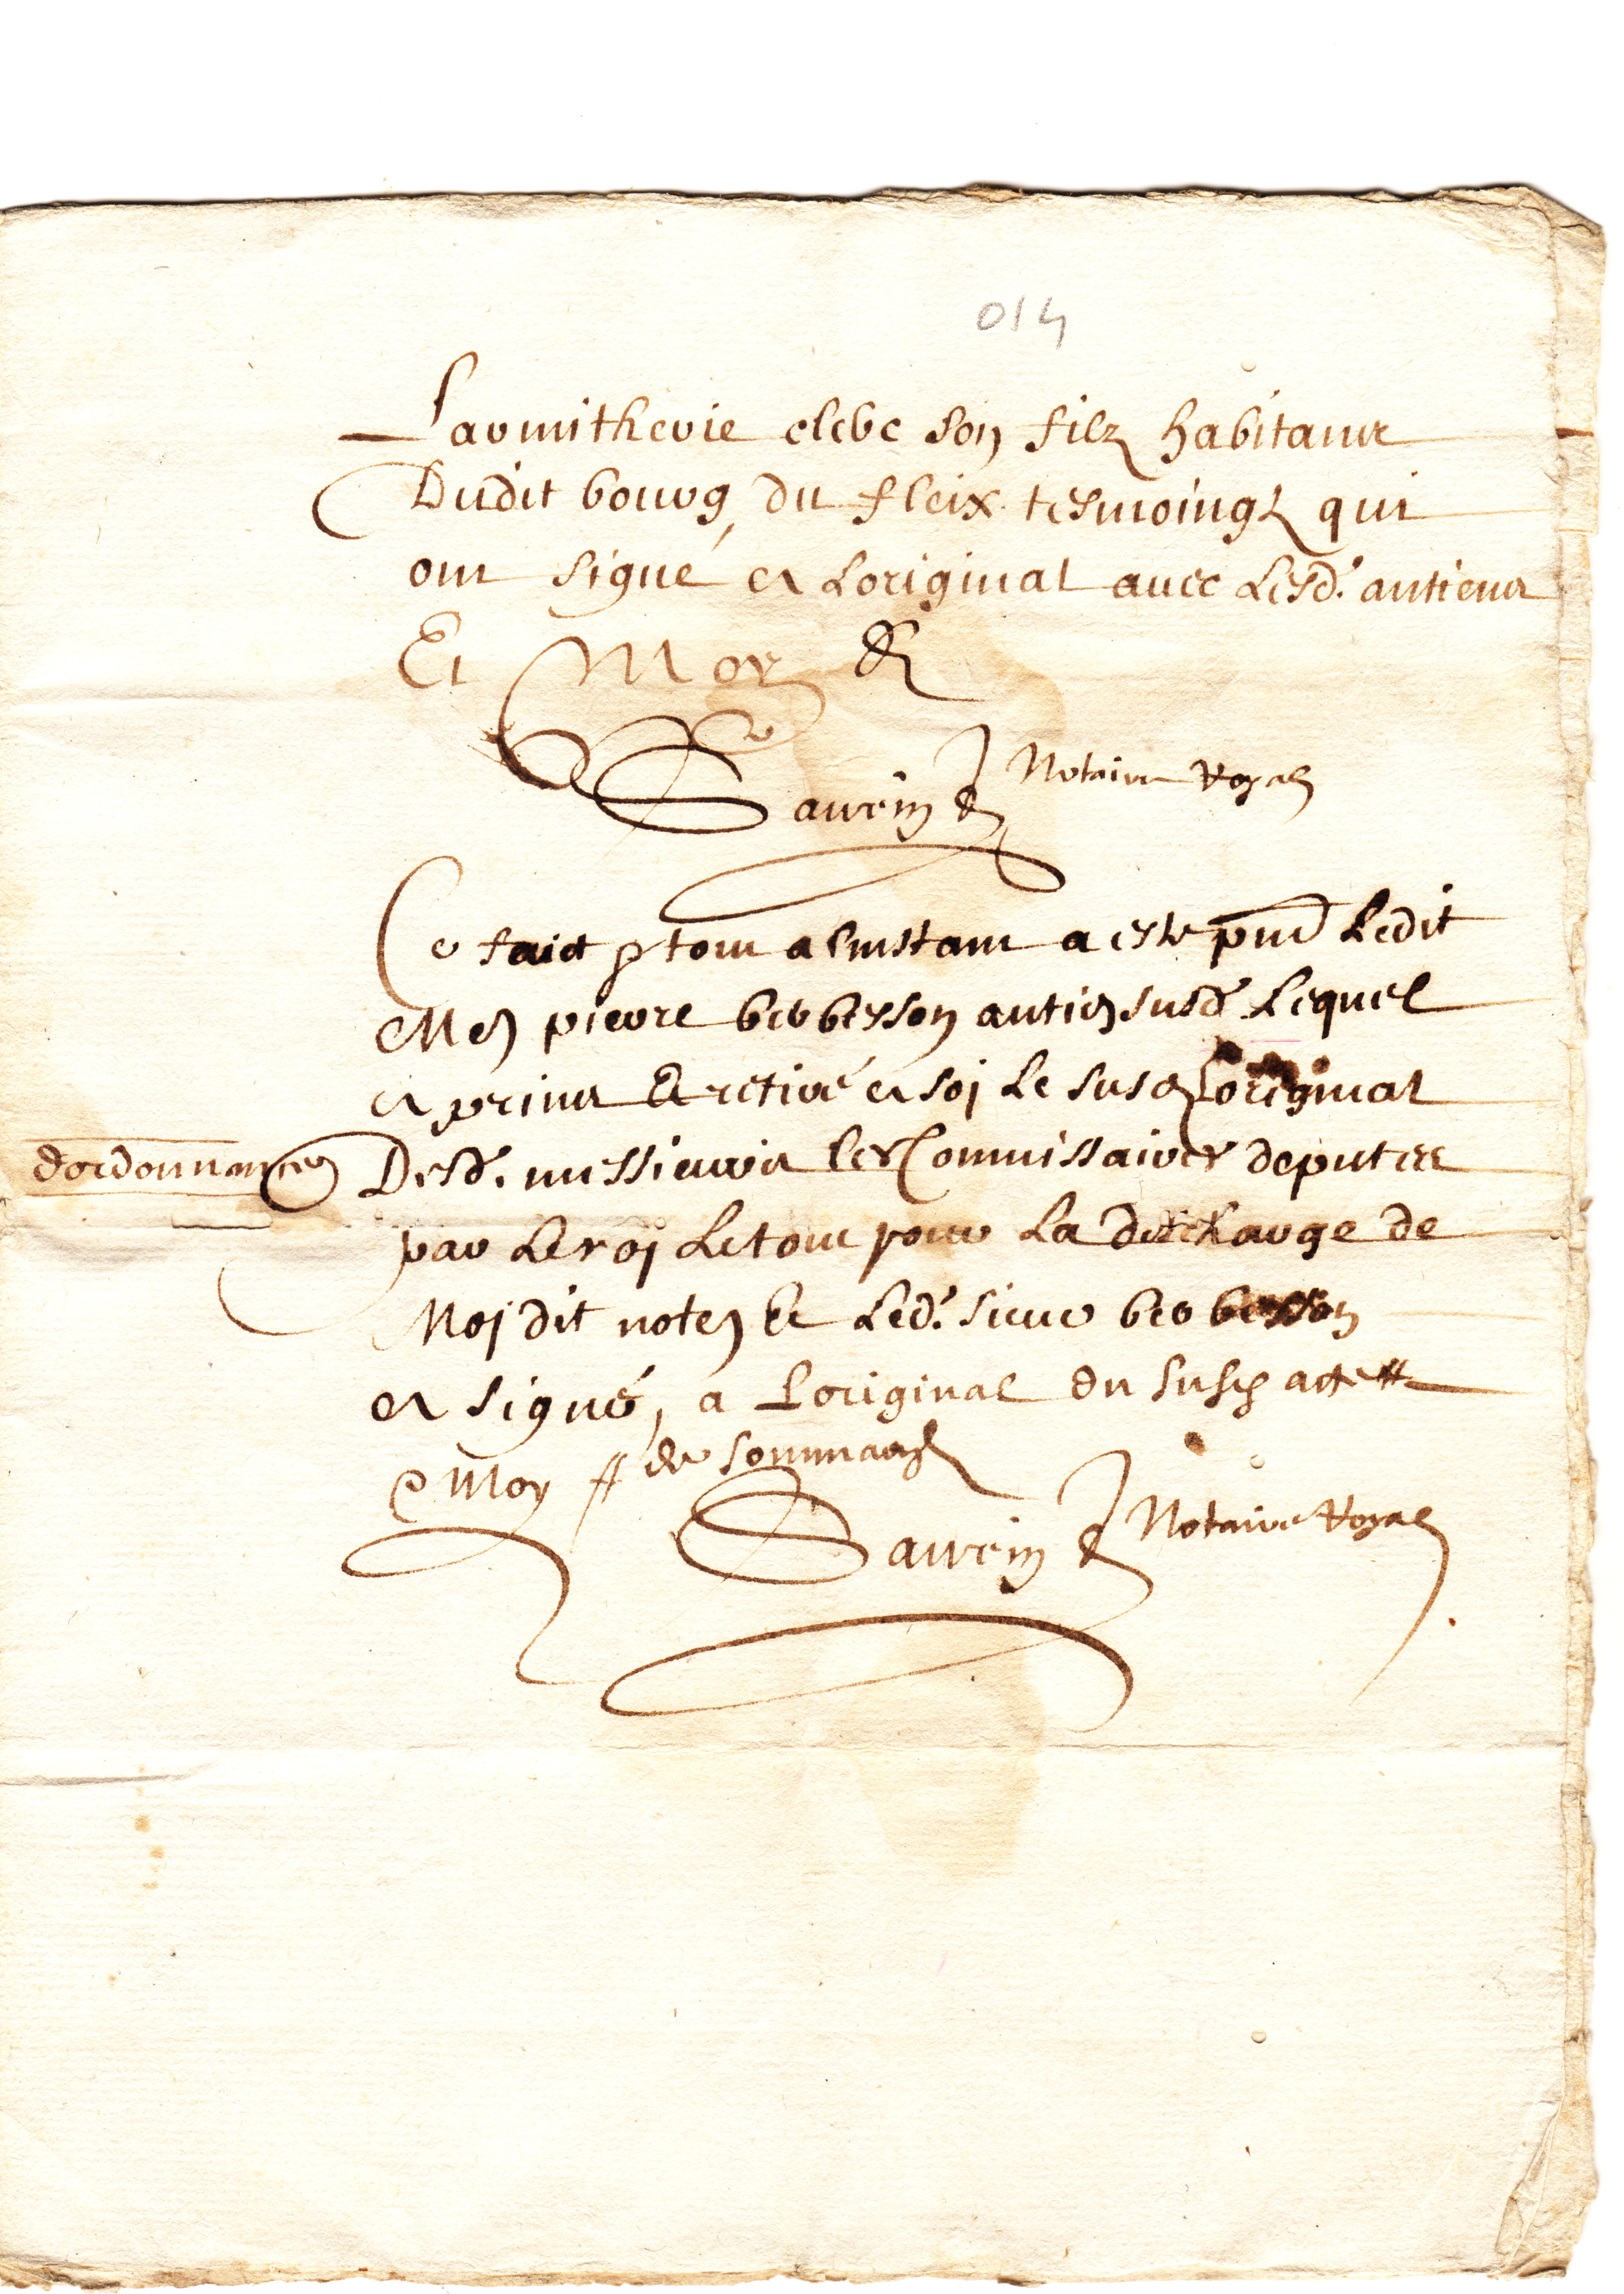 014
Larmitherie clebc son filz habitans
Dudit bourg du fleix tesmoingz qui
ont signé a Loriginal avec Lesd. antiens
Et Moy
Saurin Notaire Royal
Ce faict tout a linstant a este pnt Ledit
Me pierre berbesson antien susd Lequel
a prins Et retiré a soj Le susd original
dordonnances
Desd. messieurs les Commissaires deputtes
par Le roj Le tout pour La descharge de
Moj dit note Et Led. sieur berbesson
a signé, a Loriginal du susd acte #
e Moy # de sommaon
Saurin Notaire Royal